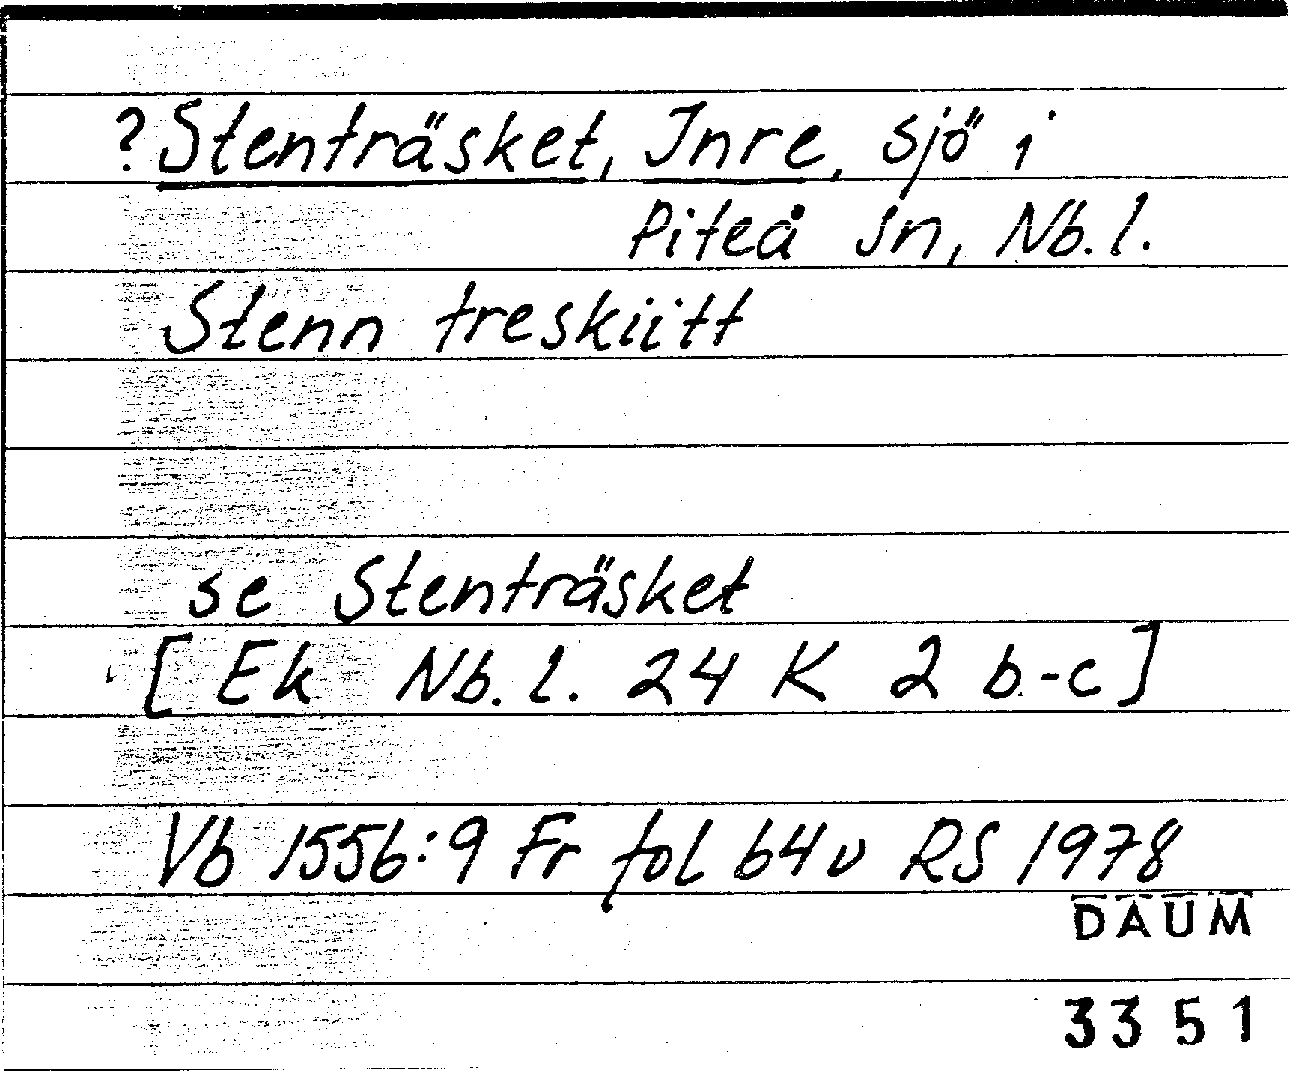 ?Stenträsket, Inre, sjö i
Piteå sn, Nb.l.
Stenn treskiitt
se Stenträsket
[Ek Nb.l. 24 K 2 b-c]
Vb 1556:9 Fr fol 64v RS 1978
DAUM
3351